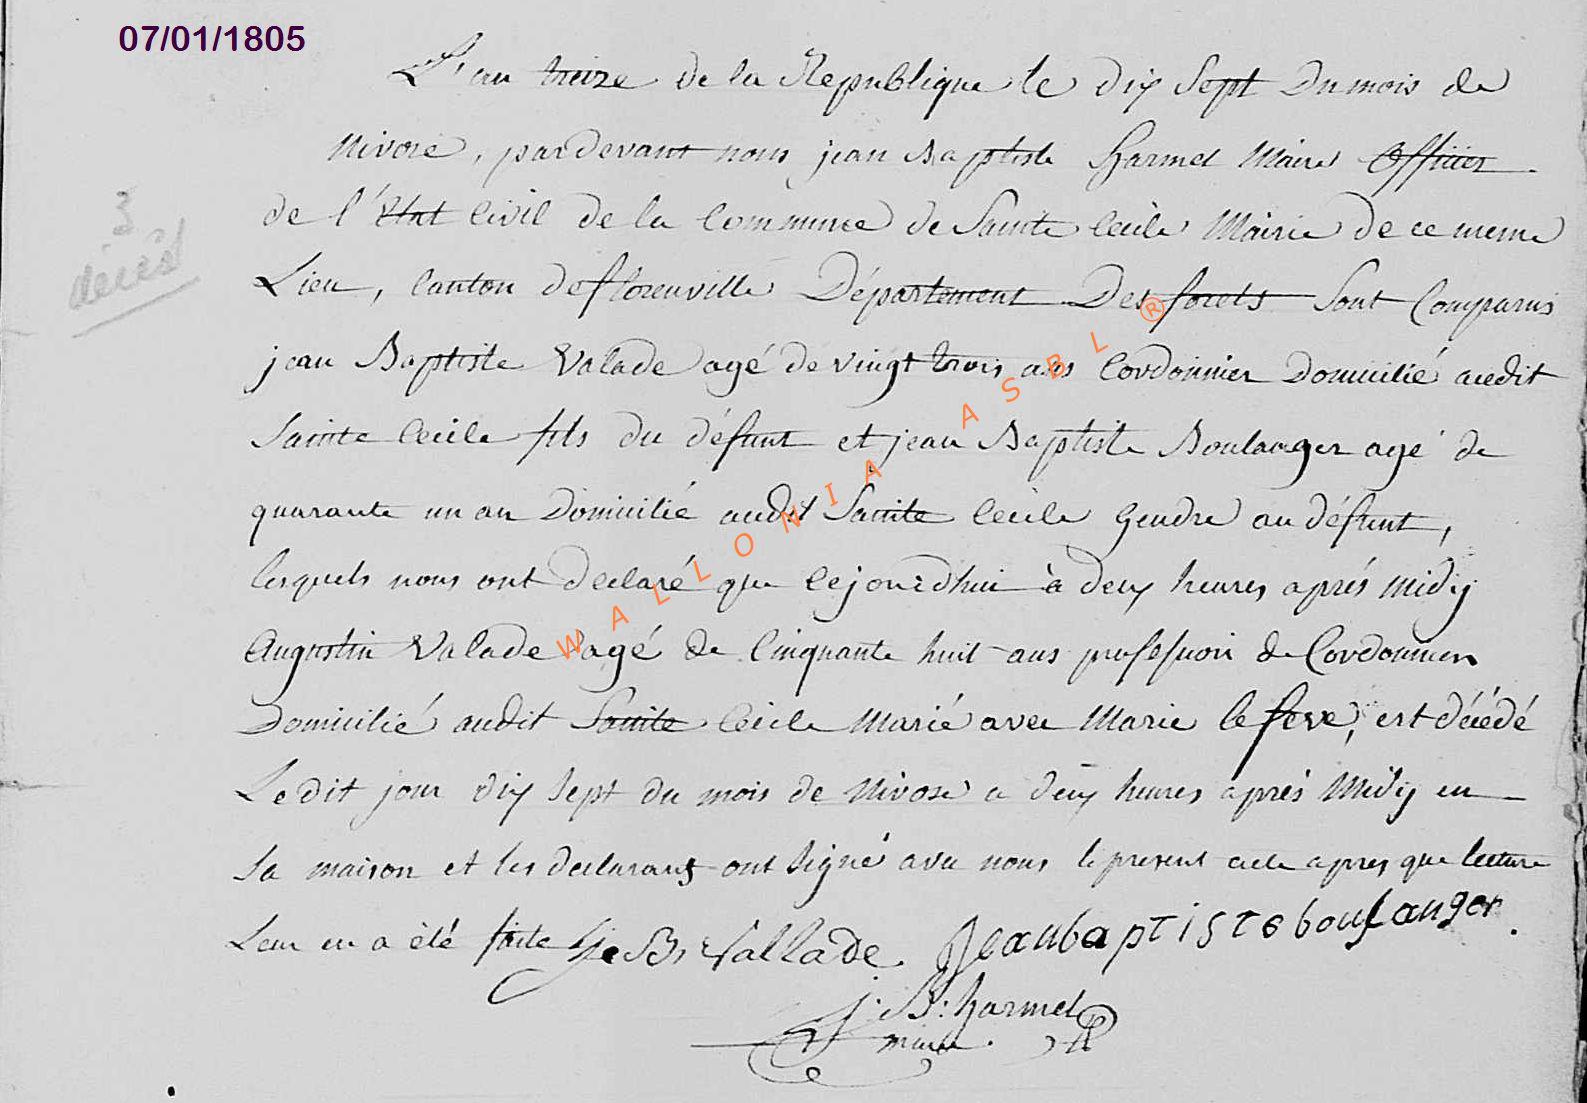 07/01/1805
L'an treize de la Republique le dix Sept Du mois de
Nivose, pardevant nous jean Baptiste Harmel Maire Officier
de l'état Civil de la Commune de Sainte Cecile Mairie de ce meme
3
décès
Lieu, Canton de florenville Département Des forets Sont Comparus
jean Baptiste Valade agé de vingt trois ans Cordonnier Domicilié audit
Sainte Cecile fils du défunt et jean Baptiste Boulanger agé de
quarante un an Domicilié audit Sainte Cecile Gendre au défunt,
lesquels nous ont declaré que Cejourdhui à deux heures aprés midy
Augustin Valade agé de Cinquante huit ans profession de Cordonnier
Domicilié audit Sainte Cecile Marié avec Marie le feve, est décédé
Le dit jour dix Sept du mois de Nivose a deux heures aprés Midy en
Sa maison et les declarans ont Signé avec nous le present acte apres que lecture
Leur en a été faite Je B, Vallade. Jeanbaptisteboulanger.
j. B: harmel
maire.
WALLONIA ASBL ®